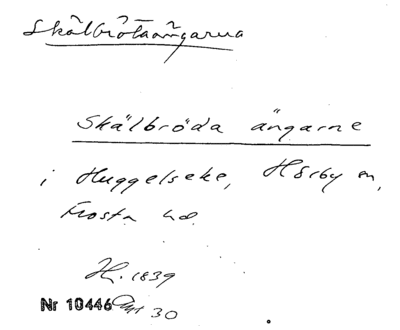 Skälbrötaängarna
Skälbröda ängarne
i Huggelseke, Hörby sn,
Frosta hd.
H. 1839
Nr 10446 Akt 30